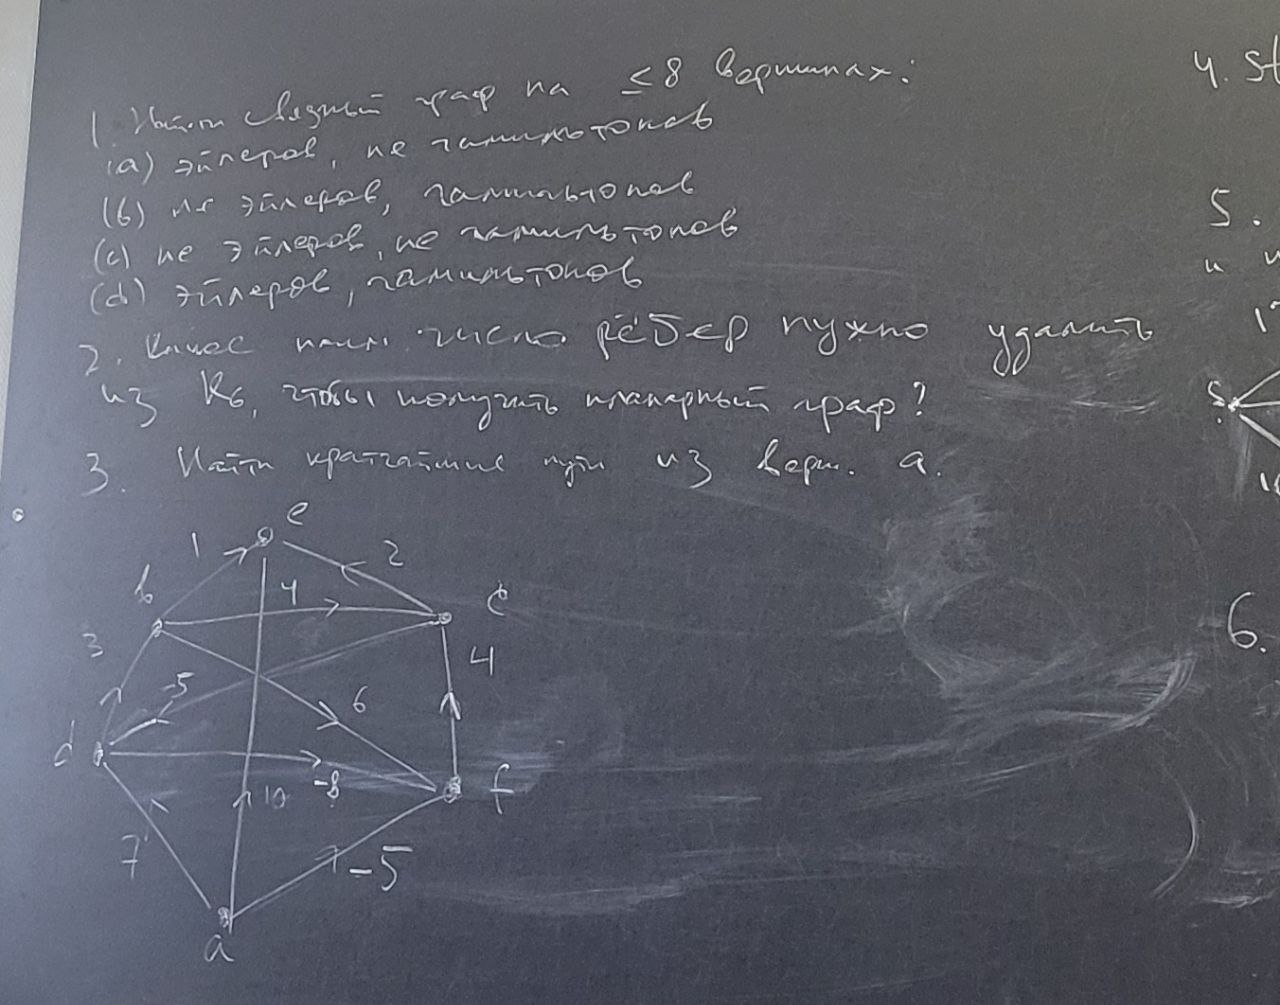 1. Найти связный граф на ≤8 вершинах:
(a) эйлеров, не гамильтонов
(b) не эйлеров, гамильтонов
(c) не эйлеров, не гамильтонов
(d) эйлеров, гамильтонов
2. Какое наим. число рёбер нужно удалить
из K6, чтобы получить планарный граф?
3. Найти кратчайшие пути из верш. a.
e
1
2
b
4
c
3
-5
4
6
d
10
-8
f
7
-5
a
4. St
5.
и
S
6.